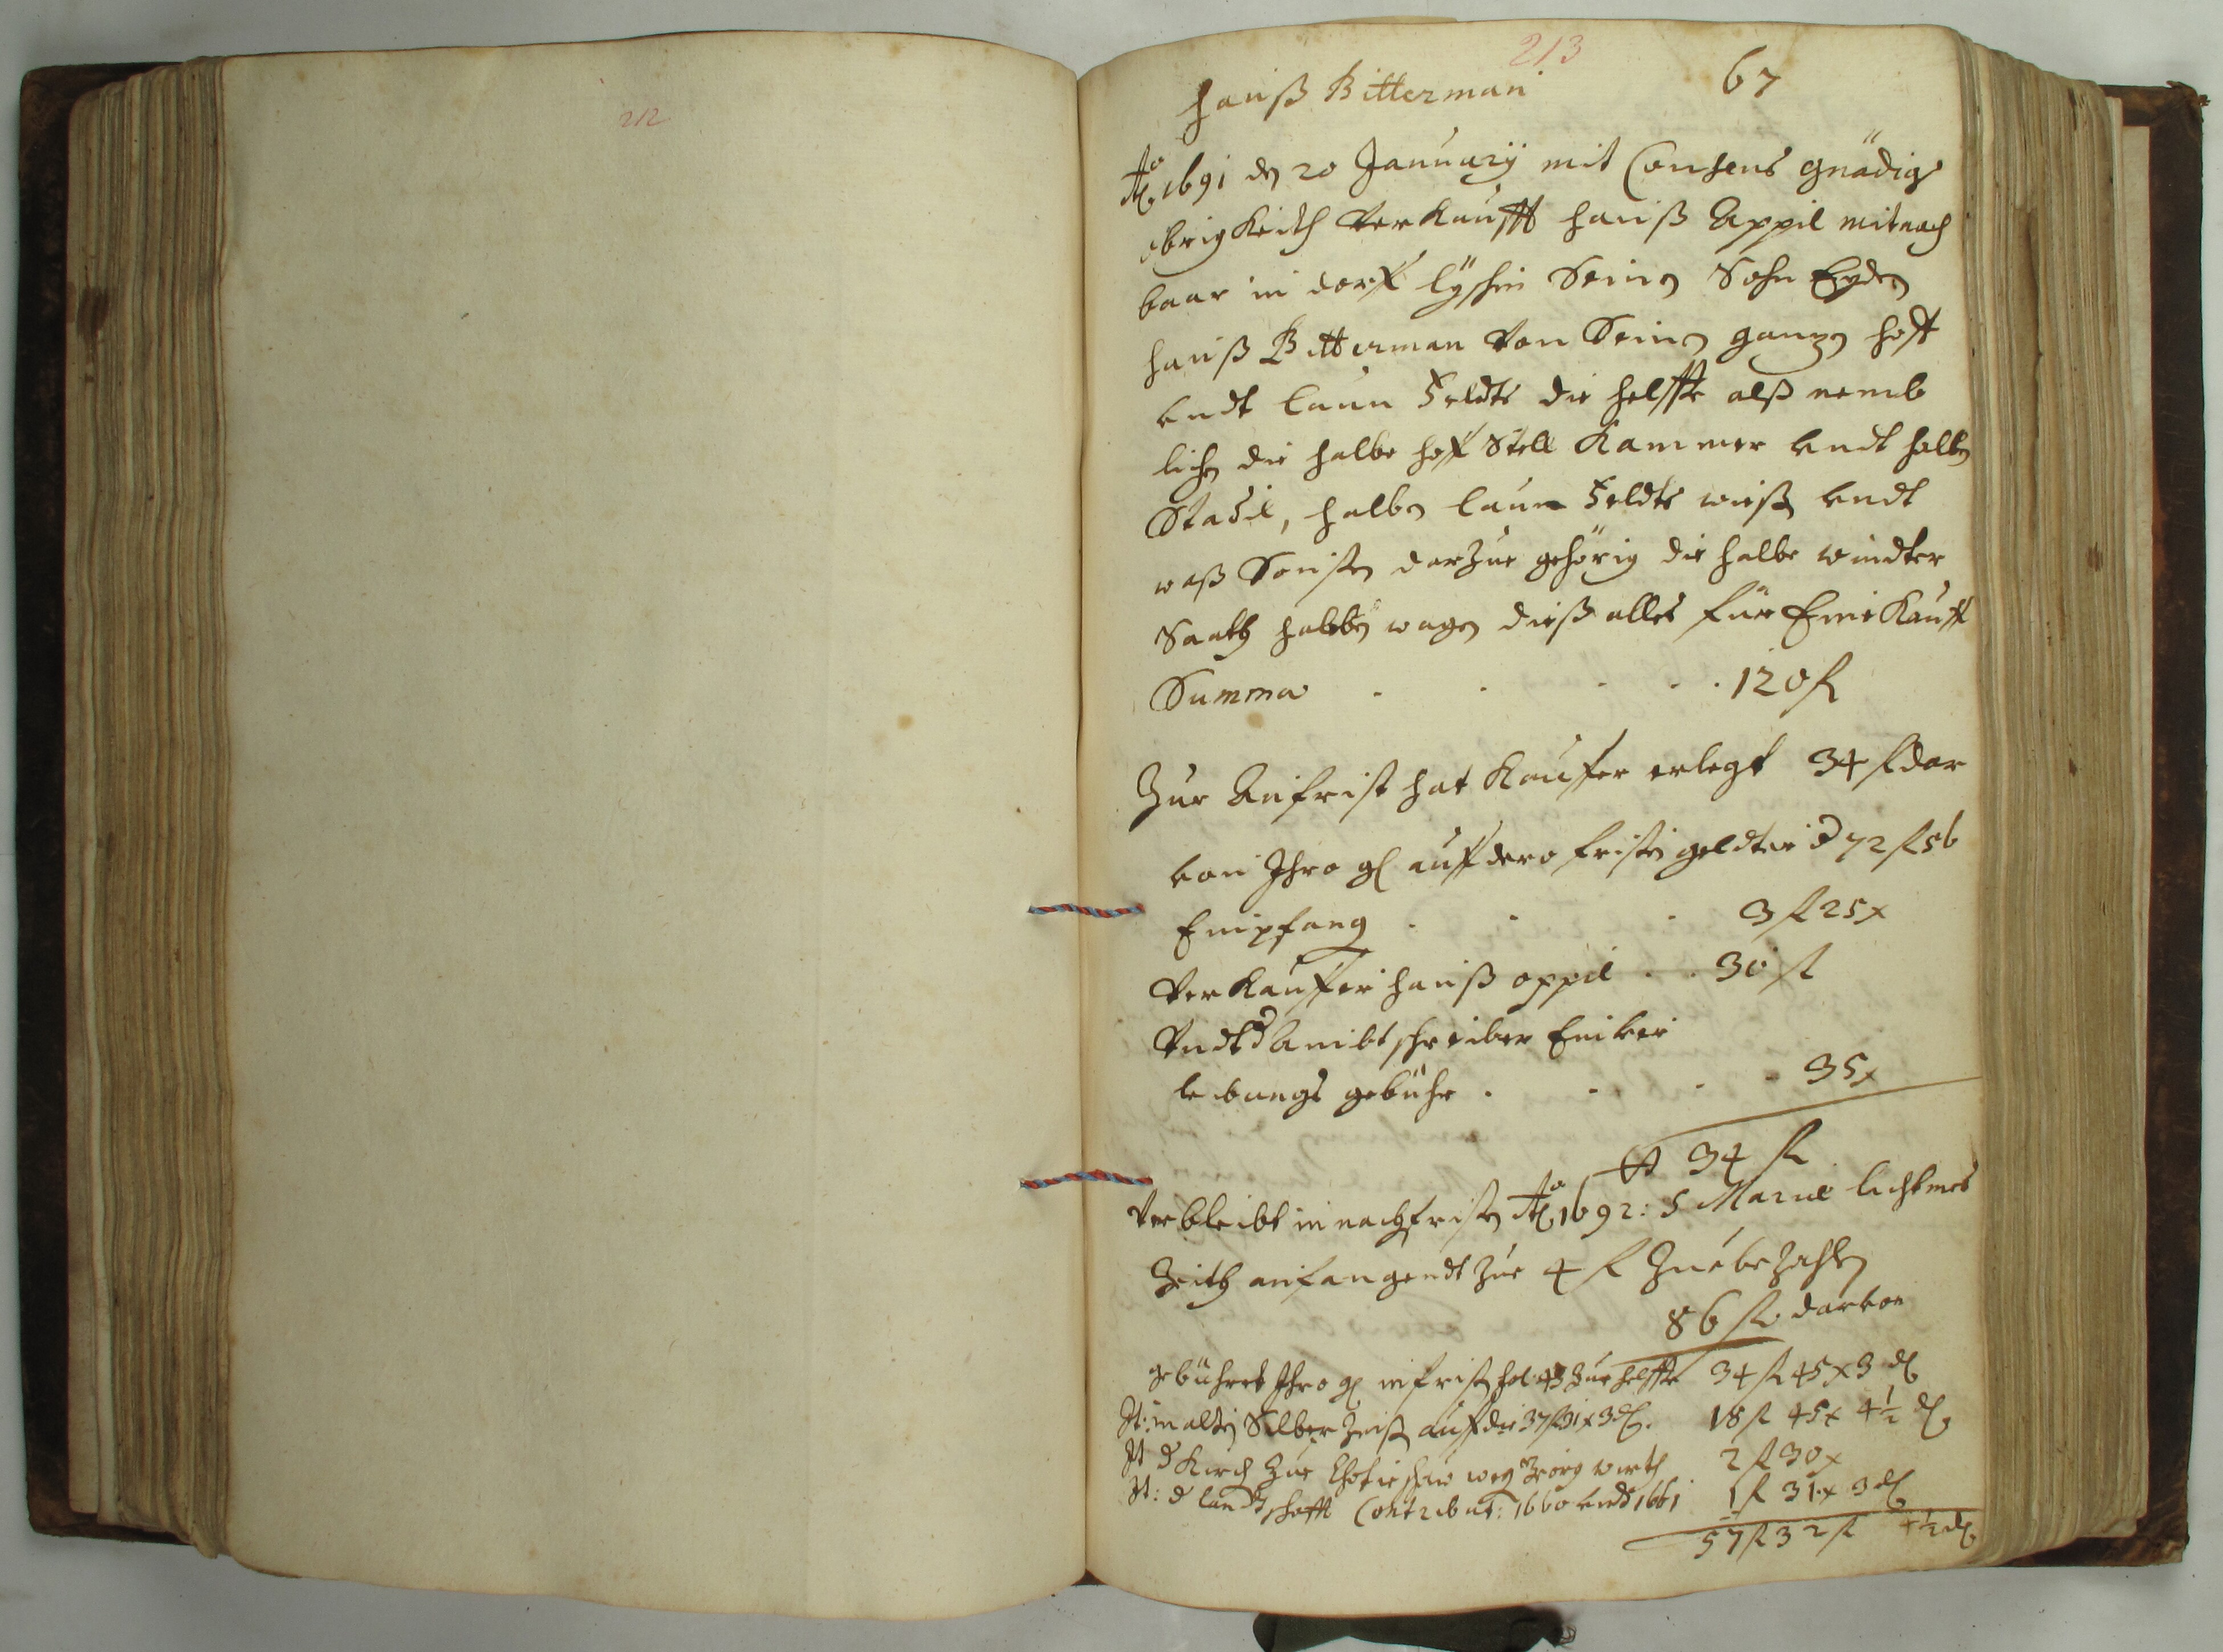 212
213
67
Hanß Bitterman
Ao 1691 den 20 January mit Consens gnädiger
obrigkeith verkaufft Hanß Appil mitnach
baar in dorf Seinen Sohn Eyden
Hanß Bitterman von Seinen gantzen Hoff
undt Laun Feldts die helffte alß nemb
lichen die halbe Hoff Stell Kammer undt halben
Stadil, halben Laun Feldts wießen undt
waß Sonsten darzue gehörig die halbe windter
Saath halben wagen dieß alles für Eine Kauff
Summa . . . . . 120 fl
Zur Anfrist hat Kauffer erlegt 34 fl dar
von Ihro gl auf dero fristen geldter 72 fl 56
Empfang . . . 3 fl 25 x
Verkauffer Hanß Appil . . 30 fl
Undt d Ambtschreiber Einver
leibungs gebühr . . . . 35 x
34 fl
Verbleibt in nachfristen Ao 1692: S Mariae lichtmes
Zeith anfangendt zue 4 fl zue bezahlen
86 fl. darvon
gebühret Ihro gl in fristen fol: 43 zue helffte 34 fl 45 x 3 dl
It: in alten Silber Zinß auf die 37 fl 31 x 3 dl. 18 fl 45 x 4½ dl
It d Kirch zue wegen Georg wirth 2 fl 30 x
It: d landtschafft Contribut: 1660 undt 1661 1 fl 31 x 3 dl
57 fl 32 fl 4½ dl